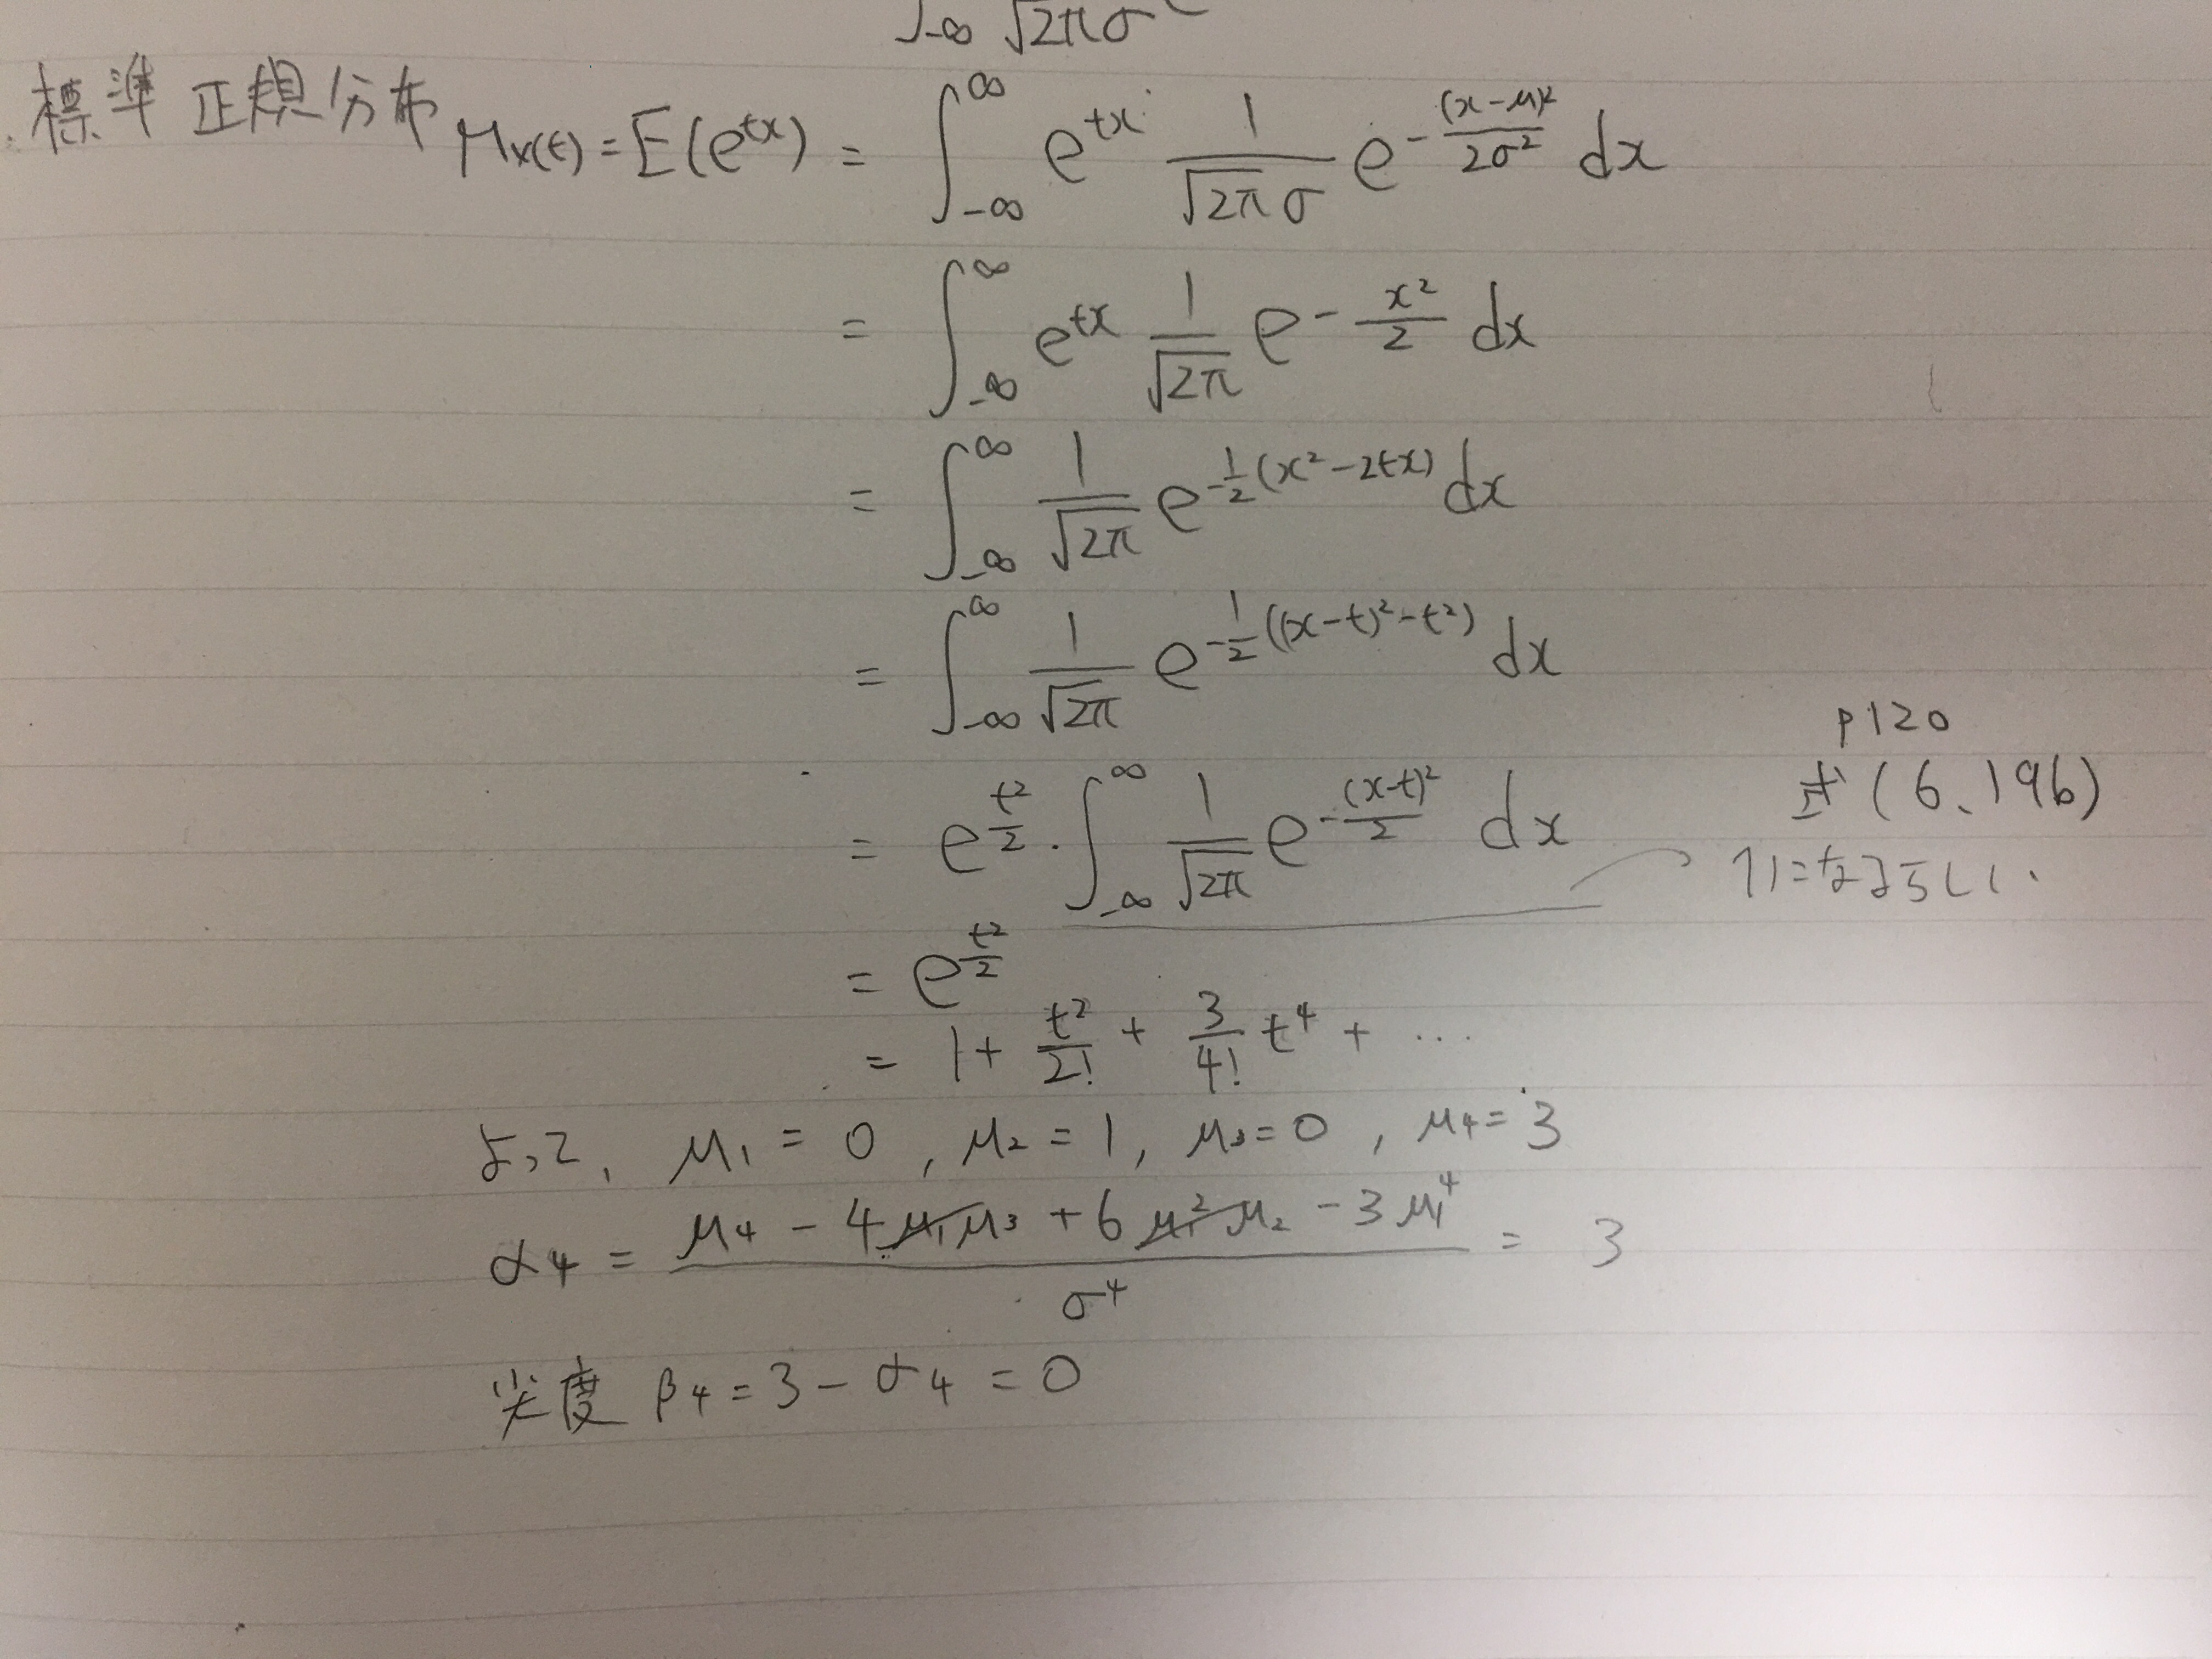 ∫_{-∞} √2πσ²
標準正規分布 Mx(t) = E(e^{tx}) = ∫_{-∞}^{∞} e^{tx} \frac{1}{√2π σ} e^{-\frac{(x-μ)²}{2σ²}} dx
= ∫_{-∞}^{∞} e^{tx} \frac{1}{√2π} e^{-\frac{x²}{2}} dx
= ∫_{-∞}^{∞} \frac{1}{√2π} e^{-\frac{1}{2}(x²-2tx)} dx
= ∫_{-∞}^{∞} \frac{1}{√2π} e^{-\frac{1}{2}((x-t)²-t²)} dx
p120
式(6.196)
= e^{\frac{t²}{2}} · ∫_{-∞}^{∞} \frac{1}{√2π} e^{-\frac{(x-t)²}{2}} dx
1になるらしい.
= e^{\frac{t²}{2}}
= 1 + \frac{t²}{2!} + \frac{3}{4!} t⁴ + ...
よって, μ₁ = 0, μ₂ = 1, μ₃ = 0, μ₄ = 3
α₄ = \frac{μ₄ - 4μ₁μ₃ + 6μ₁²μ₂ - 3μ₁⁴}{σ⁴} = 3
尖度 β₄ = 3 - α₄ = 0